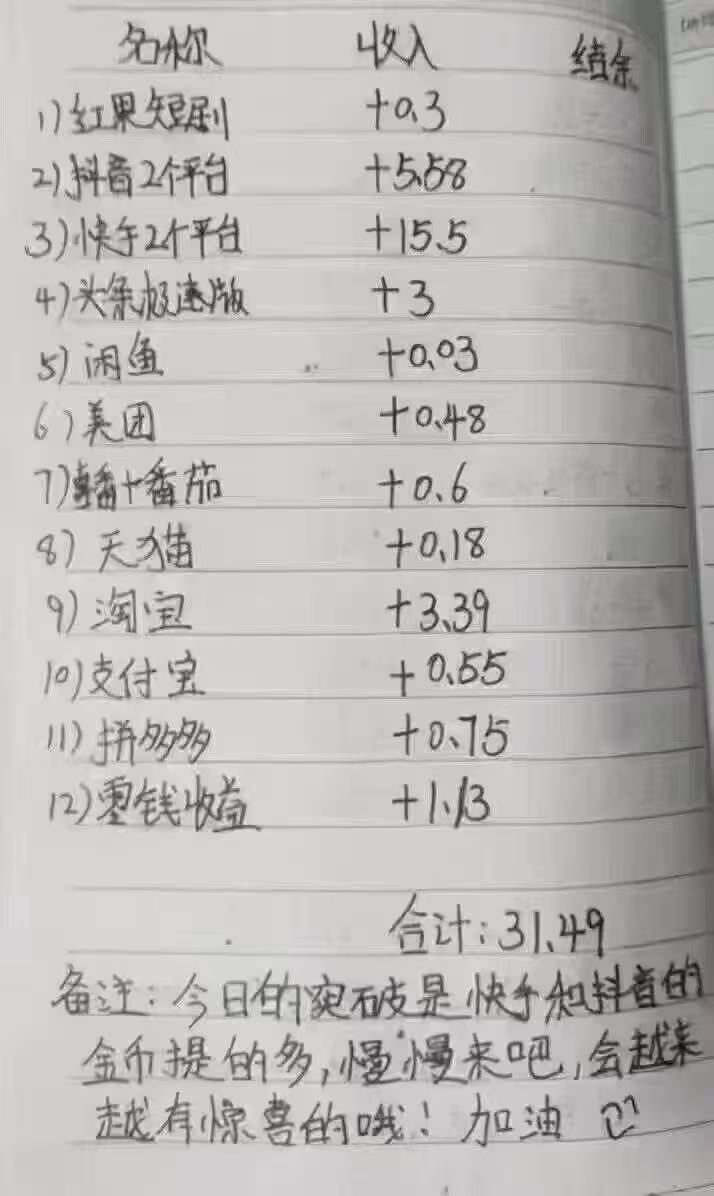 名称 收入 结余
1)红果短剧 +0.3
2)抖音2个平台 +5.58
3)快手2个平台 +15.5
4)头条极速版 +3
5)闲鱼 +0.03
6)美团 +0.48
7) +番茄 +0.6
8)天猫 +0.18
9)淘宝 +3.39
10)支付宝 +0.55
11)拼多多 +0.75
12)零钱收益 +1.13
合计:31.49
备注:今日的突破是快手和抖音的
金币提的多,慢慢来吧,会越来
越有惊喜的哦!加油